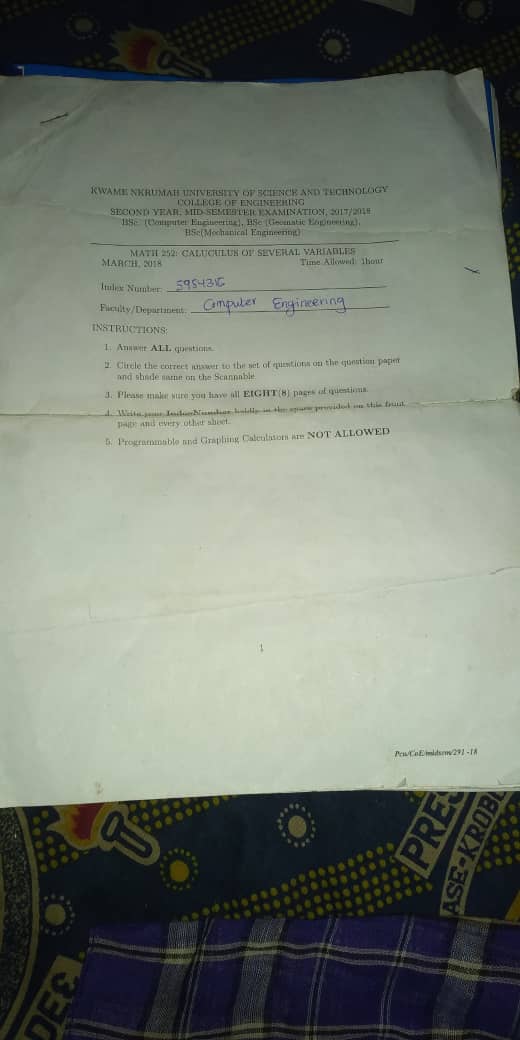 KWAME NKRUMAH UNIVERSITY OF SCIENCE AND TECHNOLOGY
COLLEGE OF ENGINEERING
SECOND YEAR, MID-SEMESTER EXAMINATION, 2017/2018
BSc. (Computer Engineering), BSc (Geomatic Engineering),
BSc(Mechanical Engineering)
MATH 252: CALUCULUS OF SEVERAL VARIABLES
MARCH, 2018 Time Allowed: 1hour
Index Number: 5954316
Faculty/Department: Computer Engineering
INSTRUCTIONS:
1. Answer ALL questions.
2. Circle the correct answer to the set of questions on the question paper
and shade same on the Scannable
3. Please make sure you have all EIGHT(8) pages of questions.
4. Write your IndexNumber boldly in the space provided on this front
page and every other sheet.
5. Programmable and Graphing Calculators are NOT ALLOWED
1
Pcu/CoE/midsem/291-18
PRES
ASE-KROBO
DEC